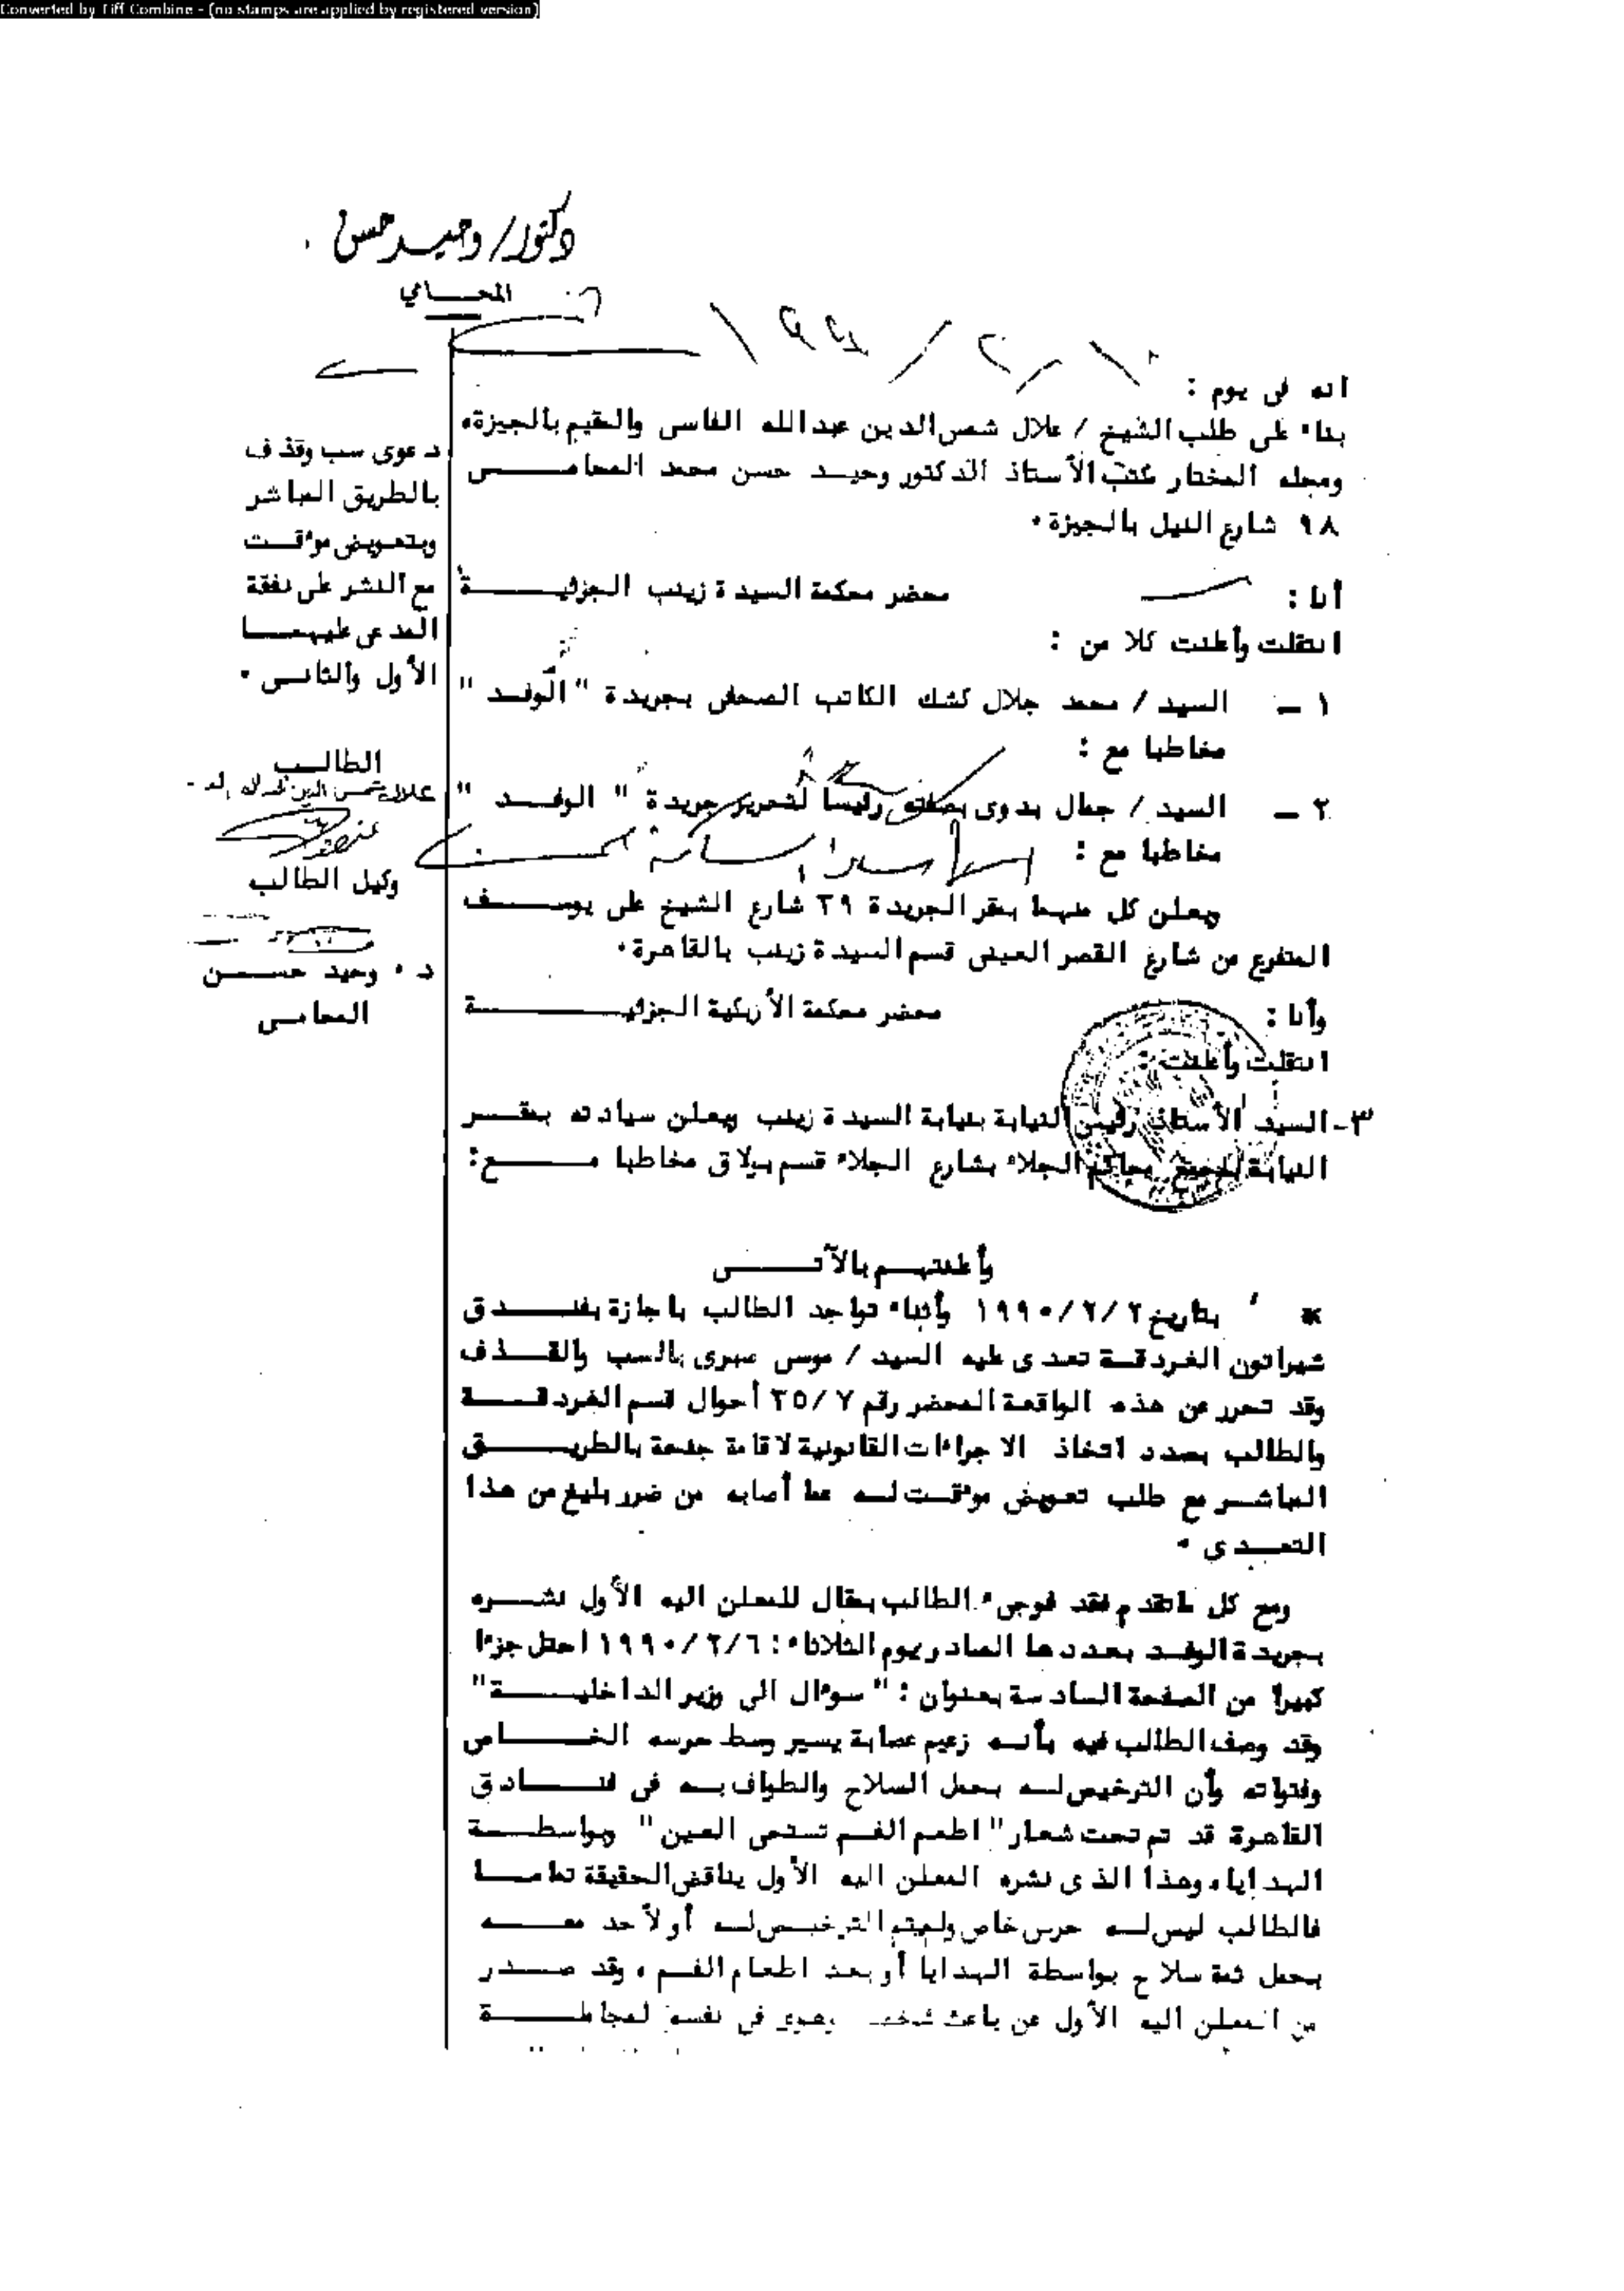 Converted by Tiff Combine - (no stamps are applied by registered version)
دكتور / وحيد حسن
المحـــامي
انه فى يوم :
بناء على طلب الشيخ / علال شمس الدين عبد الله الفاسى والمقيم بالجيزة،
ومحله المختار مكتب الأستاذ الدكتور وحيـد حسن محمد المحامــــــى
٩٨ شارع النيل بالجيزة .
أنا : محضر محكمة السيدة زينب الجزئيــــــــة
انتقلت وأعلنت كلا من :
١ ـ السيد / محمد جلال كشك الكاتب الصحفى بجريدة " الوفـد "
مخاطبا مع :
٢ ـ السيد / جمال بدوى بصفته رئيسا لتحرير جريدة " الوفــد "
مخاطبا مع :
ويعلن كل منهما بمقر الجريدة ٣٩ شارع الشيخ على يوســــف
المتفرع من شارع القصر العينى قسم السيدة زينب بالقاهرة .
وأنا : محضر محكمة الأزبكية الجزئيــــــــــة
انتقلت وأعلنت :
٣ـ السيد الأستاذ رئيس النيابة بنيابة السيدة زينب ويعلن سيادته بمقــر
النيابة بمجمع محاكم الجلاء بشارع الجلاء قسم بولاق مخاطبا مــــع :
دعوى سب وقذف
بالطريق المباشر
وبتعويض مؤقــت
مع النشر على نفقة
المدعى عليهمــا
الأول والثانــى .
الطالــب
علال شمس الدين عبد الله
وكيل الطالب
د . وحيد حســـن
المحامــى
وأعلنتهــم بالآتــــــى
* بتاريخ ١٩٩٠/٢/٢ وأثناء تواجد الطالب باجازة بفنـــدق
شيراتون الغردقــة تعدى عليه السيد / موسى صبرى بالسب والقــذف
وقد تحرر عن هذه الواقعة المحضر رقم ٣٥/٧ أحوال قسم الغردقــــة
والطالب بصدد اتخاذ الاجراءات القانونية لاقامة جنحة بالطريــــق
المباشــر مع طلب تعويض مؤقــت لــه عما أصابه من ضرر بليغ من هذا
التعــدى .
ومع كل ماتقدم فقد فوجىء الطالب بمقال للمعلن اليه الأول نشـــره
بجريدة الوفــد بعددها الصادر يوم الثلاثاء : ١٩٩٠/٢/٦ احتل جزءا
كبيرا من الصفحة السادسة بعنوان : " سؤال الى وزير الداخليــــة "
وقد وصف الطالب فيه بأنــه زعيم عصابة يسير وسط حرسه الخـــاص
وفتواته وأن الترخيص لــه بحمل السلاح والطواف بــه فى فنـــادق
القاهرة قد تم تحت شعار " اطعم الفــم تستحى العين " وبواسطــة
الهدايا، وهذا الذى نشره المعلن اليه الأول يناقض الحقيقة تمامــا
فالطالب ليس لــه حرس خاص ولم يتم الترخيــص لــه أو لأحد معــــه
بحمل ثمة سلاح بواسطة الهدايا أو بعد اطعام الفــم ، وقد صــدر
من المعلن اليه الأول عن باعث فى نفسه لمجاملــــة